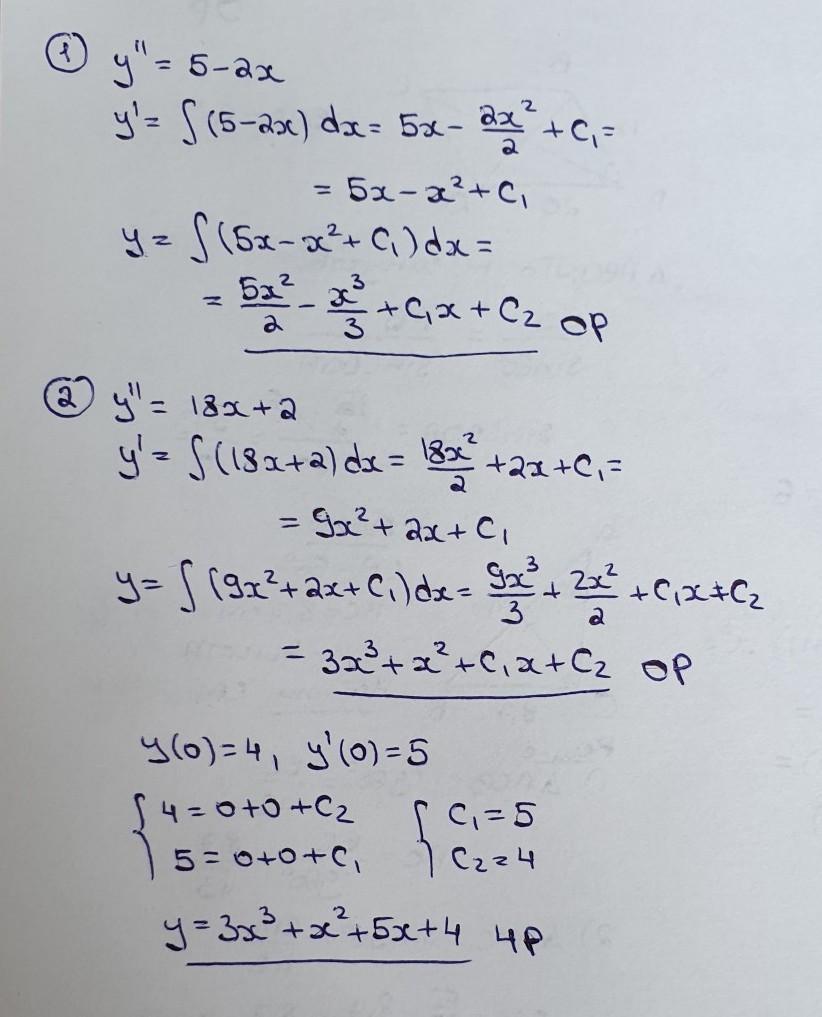 ① y'' = 5-2x
y' = ∫(5-2x) dx = 5x - 2x²/2 + C₁ =
= 5x - x² + C₁
y = ∫(5x - x² + C₁) dx =
= 5x²/2 - x³/3 + C₁x + C₂ ОР
② y'' = 18x + 2
y' = ∫(18x+2) dx = 18x²/2 + 2x + C₁ =
= 9x² + 2x + C₁
y = ∫(9x² + 2x + C₁) dx = 9x³/3 + 2x²/2 + C₁x + C₂
= 3x³ + x² + C₁x + C₂ ОР
y(0) = 4, y'(0) = 5
{ 4 = 0+0+C₂ { C₁ = 5
5 = 0+0+C₁ C₂ = 4
y = 3x³ + x² + 5x + 4 ЧР